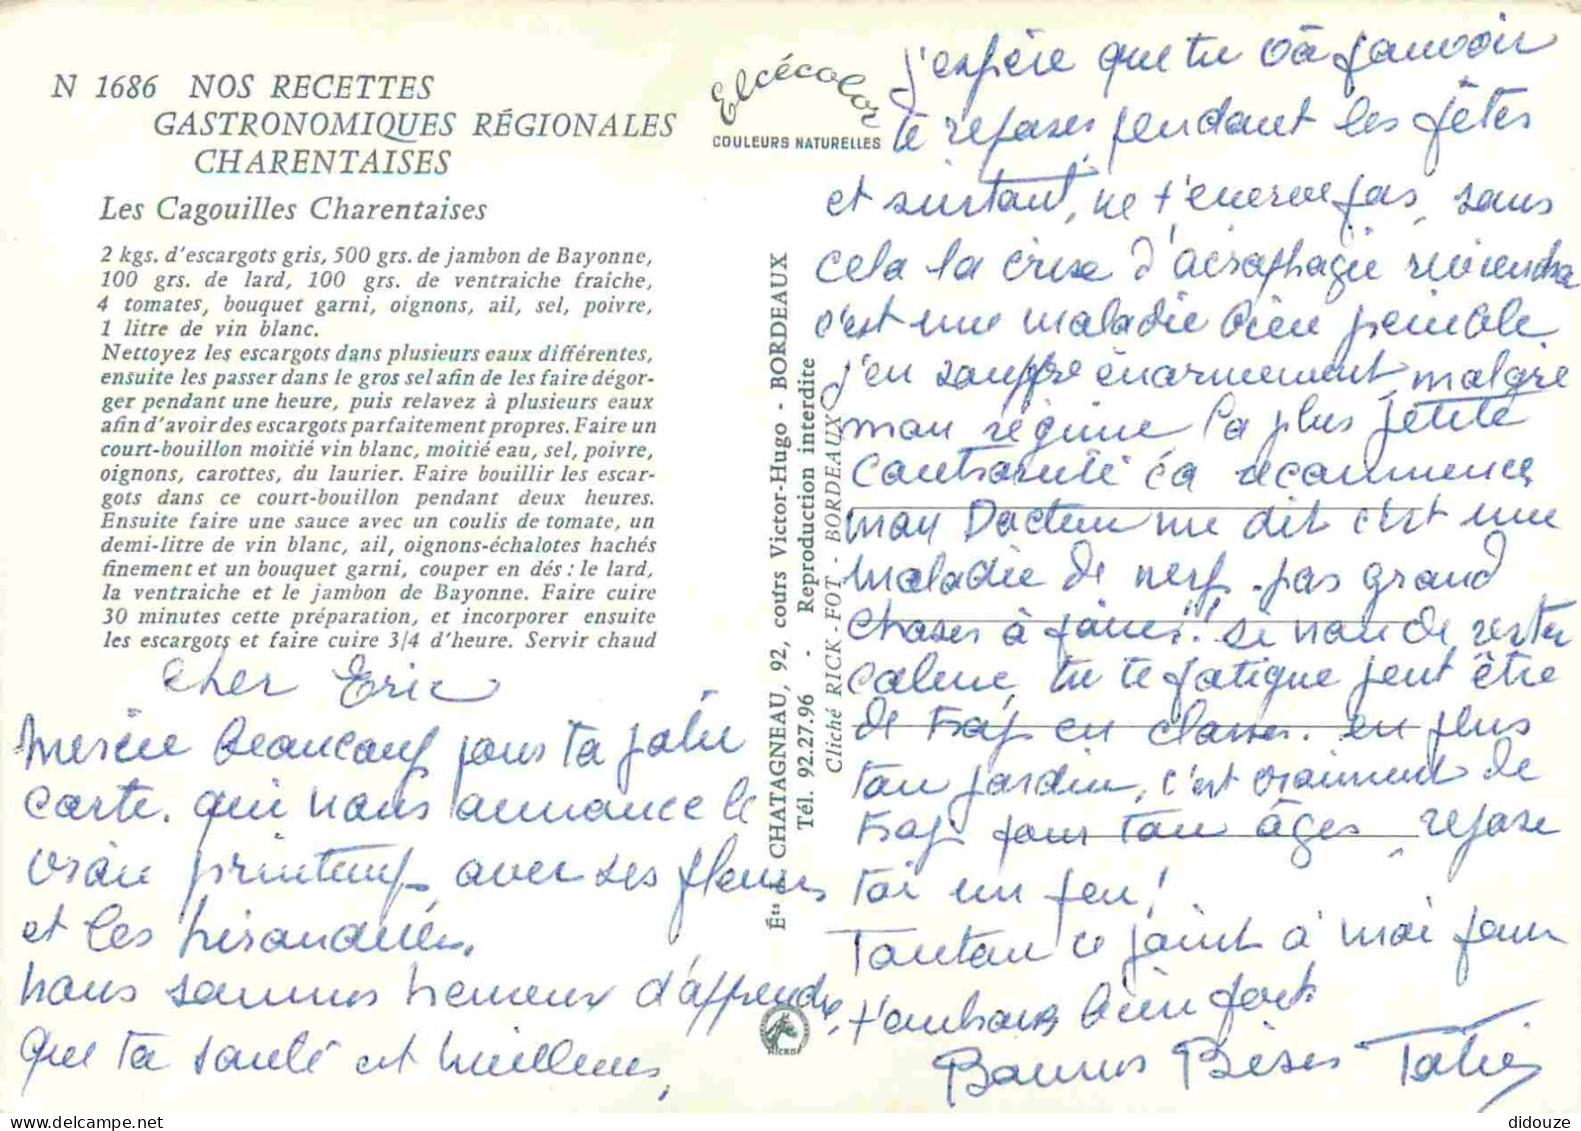 N 1686 NOS RECETTES
GASTRONOMIQUES RÉGIONALES
CHARENTAISES
Les Cagouilles Charentaises
2 kgs. d'escargots gris, 500 grs. de jambon de Bayonne,
100 grs. de lard, 100 grs. de ventraiche fraîche,
4 tomates, bouquet garni, oignons, ail, sel, poivre,
1 litre de vin blanc.
Nettoyez les escargots dans plusieurs eaux différentes,
ensuite les passer dans le gros sel afin de les faire dégor-
ger pendant une heure, puis relavez à plusieurs eaux
afin d'avoir des escargots parfaitement propres. Faire un
court-bouillon moitié vin blanc, moitié eau, sel, poivre,
oignons, carottes, du laurier. Faire bouillir les escar-
gots dans ce court-bouillon pendant deux heures.
Ensuite faire une sauce avec un coulis de tomate, un
demi-litre de vin blanc, ail, oignons-échalotes hachés
finement et un bouquet garni, couper en dés : le lard,
la ventraiche et le jambon de Bayonne. Faire cuire
30 minutes cette préparation, et incorporer ensuite
les escargots et faire cuire 3/4 d'heure. Servir chaud
Cher Eric
beaucoup pour ta jolie
carte. qui nous annonce le
vrai printemps avec ses fleurs
et les
nous sommes heureux d'apprendre,
que ta santé est meilleure,
Elcécolor
COULEURS NATURELLES
Éts CHATAGNEAU, 92, cours Victor-Hugo - BORDEAUX
Tél. 92.27.96 - Reproduction interdite
Cliché RICK-FOT - BORDEAUX
MICRO
j'espère que tu va pouvoir
te reposer pendant les fêtes
et surtout, ne t'énerve pas, sans
cela la crise d'aérophagie reviendra
c'est une maladie bien penible
j'en souffre énormement malgré
mon régime la plus petite
contrariété ça recommence
mon Docteur me dit c'est une
maladie de nerf. pas grand
choses à faire!! si non de rester
calme, tu te fatigue peut être
de trop en classe. en plus
ton jardin, c'est vraiment de
trop pour ton âges, repose
toi un peu!
Tonton ce joint à moi pour
t'embrasser bien fort
Bonnes Bises
didouze